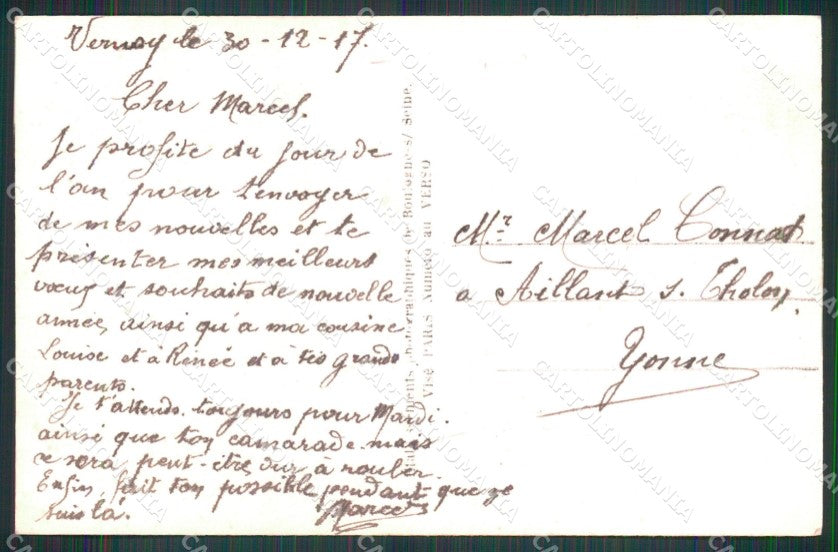 Vernoy le 30-12-17.
Cher Marcel.
Je profite du jour de
l'an pour t'envoyer
de mes nouvelles et te
présenter mes meilleurs
vœux et souhaits de nouvelle
année, ainsi qu'à ma cousine
Louise et à Renée et à tes grands
parents.
Je t'attends toujours pour Mardi.
ainsi que ton camarade mais
ce sera peut-être dur à rouler.
Enfin, fait ton possible pendant que je
suis là.
Marcel
Photographiques de Boulogne s/ Seine.
Visé PARIS Numéro au VERSO
Mr Marcel Connat
a Aillant s. Tholon.
Yonne
CARTOLINOMANIA